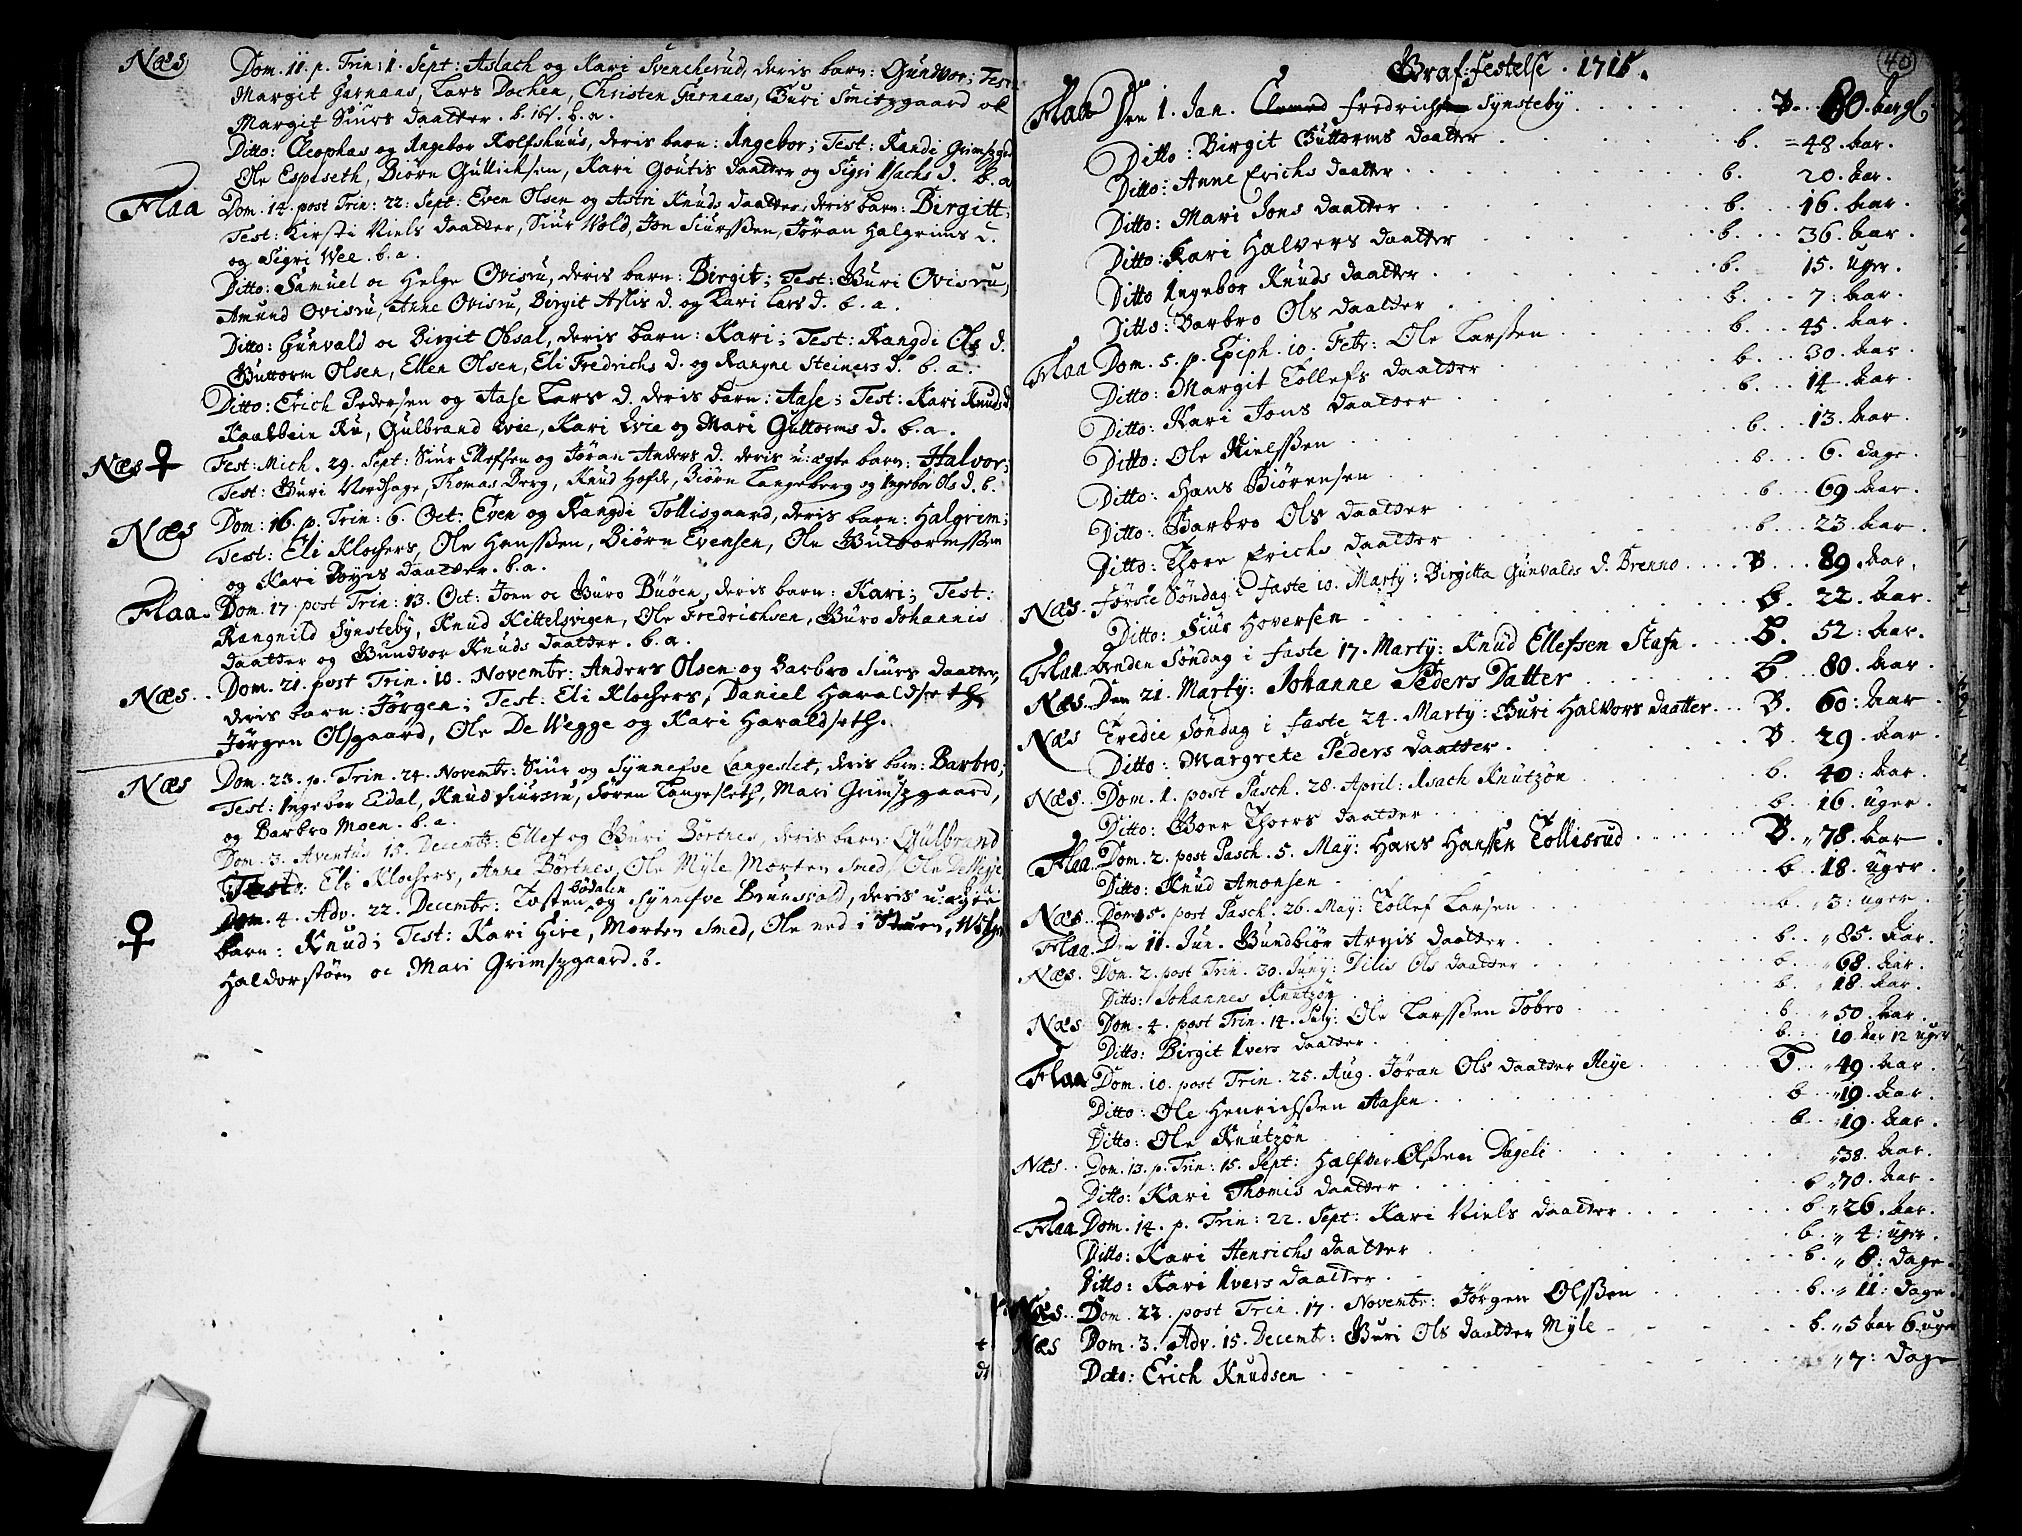 Næs Dom. 11. p. Trin: 1. Sept: Aslach og Kari Svencherud, deris barn: Gundvor; Test:
Margit Garnaas, Lars Dochen, Christen Garnaas, Guri Smitzgaard oc
Margit Siurs daatter. b. a.
Ditto: Cleophas og Ingebor Rolfshuus, deris barn: Ingebor; Test: Randi Grimsgrd
Ole Espeseth, Biørn Gullichsen, Kari Goutis daatter og Sigri d. b. a
Flaa Dom. 14. post Trin: 22: Sept: Even Olsen og Astri Knuds daatter, deris barn: Birgitt;
Test: Kirsti Niels daatter, Siur Wold, Jon Siurssen, Jøran Halgrims d.
og Sigri Wee. b. a.
Ditto: Samuel oc Helge Ovisru, deris barn: Birgit; Test: Guri Ovisru,
Amund Ovisru, Anne Ovisru, Birgit Aslis d. og Kari Lars d. b. a.
Ditto: Gunvald oc Birgit Obsal, deris barn: Kari; Test: Rangdi Ols d.
Guttorm Olsen, Ellen Olsen, Eli Fredrichs d. og Rangne Steiners d. b. a.
Ditto: Erich Pedersen og Aase Lars d. deris barn: Aase; Test: Kari Knuds d.
Kaalbein Ru, Gulbrand Evie, Kari Evie og Mari Guttorms d. b. a.
Næs ♀ Fest: Mich. 29. Sept: Siur Ellefsen og Jøran Anders d. deris u:ægte barn: Halvor;
Test: Guri Nordhage, Thomas Berg, Knud Hofde, Biørn Langeberg og Ingebor Ols d. b.
Næs Dom: 16. p. Trin: 6. Oct: Even og Rangdi Tollisgaard, deris barn: Halgrim;
Test: Eli Klochers, Ole Hanssen, Biørn Evensen, Ole Guttormssen
og Kari Boyes daatter. b. a.
Flaa. Dom. 17. post Trin: 13. Oct: Joen oc Guro Buøen, deris barn: Kari; Test:
Rangnild Synsteby, Knud Kittelsvigen, Ole Fredrichsen, Guro Johannis
daatter og Gundvor Knuds daatter. b. a.
Næs.. Dom. 21. post Trin. 10. Novembr: Anders Olsen og Barbro Siurs daatter,
deris barn: Jørgen; Test: Eli Klochers, Daniel Haraldseth,
Jørgen Olsgaard, Ole De Wegge og Kari Haraldseth.
Næs Dom. 23. p. Trin. 24. Novembr: Siur og Synnefve Langeslet, deris barn: Barbro;
Test: Ingebor Eidal, Knud Siursru, Søren Langesleth, Mari Grimsgaard,
og Barbro Moen. b. a.
Dom. 3. Aventus 15. Decembr: Ellef og Guri Børtnes, deris barn: Gulbrand
Test: Eli Klochers, Anne Børtnes, Ole Myle, Morten Smed, Ole De Wegge
Bødalen b. a.
♀ Dom. 4. Adv. 22. Decembr: Tosten og Synnefve Brunsvold, deris u:ægte
barn: Knud; Test: Kari Hire, Morten Smed, Ole ned i
Haldorstøen oc Mari Grimsgaard. b.
40
Graf-festelse. 1715.
Flaa Den 1. Jan. Fredrich Synsteby . . . B. . 80.
Ditto: Birgit Guttorms daatter . . . b. 48. Aar.
Ditto: Anne Erichs daatter . . . b. 20. Aar.
Ditto: Mari Jons daatter . . . b. 16. Aar.
Ditto: Kari Halvers daatter . . . b. 36. Aar.
Ditto Ingebor Knuds daatter . . . b. 15. uger.
Ditto: Barbro Ols daatter . . . b. 7: Aar.
Flaa Dom. 5. p. Epiph. 10. Febr: Ole Larssen . . . b. 45. Aar.
Ditto: Margit Tollefs daatter . . . b. 30. Aar.
Ditto: Kari Jons daatter . . . b. 14. Aar.
Ditto: Ole Nielssen . . . b. 13. Aar.
Ditto: Hans Biørensen . . . b. 6. dage.
Ditto: Barbro Ols daatter . . . b. 69 Aar.
Ditto: Thore Erichs daatter . . . b. 23. Aar.
Næs. Første Søndag i faste 10. Marty: Birgitta Gunvalds d. Brenno . . . B. 89. Aar.
Ditto: Siur Hoversen . . . b. 22. Aar.
Flaa. Anden Søndag i faste 17. Marty: Knud Ellefsen Stafn . . . B. 52: Aar.
Næs. Den 21. Marty: Johanne Peders Datter . . . b. 80. Aar
Næs Tredie Søndag i faste 24. Marty: Guri Halvors daatter . . . B. 60: Aar
Ditto: Margrete Peders daatter . . . B. 29. Aar
Næs. Dom. 1. post Pasch. 28. April: Isach Knutzøn . . . b. 40: Aar.
Ditto: Goer Thoers daatter . . . b. 16. uger.
Flaa. Dom. 2. post Pasch. 5. May: Hans Hanssen Tollisrud . . . B. 78. Aar
Ditto: Knud Amonsen . . . b. 18. uger.
Næs. Dom. 5. post Pasch. 26. May: Tollef Larsen . . . b. 3: uger.
Flaa. Den 11. Jun. Gundbiør Arnis daatter . . . b. 85. Aar.
Næs. Dom. 2. post Trin. 30. Juny: Dilis Ols daatter . . . b. 68. Aar.
Ditto: Johannes Knutzøn . . . b. 18. Aar.
Næs Dom. 4. post Trin. 14. July: Ole Larssen Tobro . . . b. 50. Aar.
Ditto: Birgit Ivers daatter . . . b. 10 Aar 12 uger
Flaa Dom. 10. post Trin. 25. Aug. Jøran Ols daatter Reye . . . B. 49. Aar.
Ditto: Ole Henrichssen Aasen . . . b. 19. Aar.
Ditto: Ole Knutzøn . . . b. 19. Aar.
Næs.. Dom. 13. p. Trin: 15. Sept: Halfver Olssen Dageli . . . 38. Aar.
Ditto: Kari Thomis daatter . . . b. 70. Aar.
Flaa Dom. 14. p. Trin: 22. Sept: Kari Niels daatter . . . b. 26. Aar.
Ditto: Kari Henrichs daatter . . . b. 4: uger.
Ditto: Kari Ivers daatter . . . b. 8: dage
Næs.. Dom. 22. post Trin. 17. Novembr: Jørgen Olssen . . . b. 11: dage
Næs Dom. 3. Adv. 15. Decemb: Guri Ols daatter Myle . . . b. 5 Aar 6 uger
Ditto: Erich Knudsen . . . 7: dage